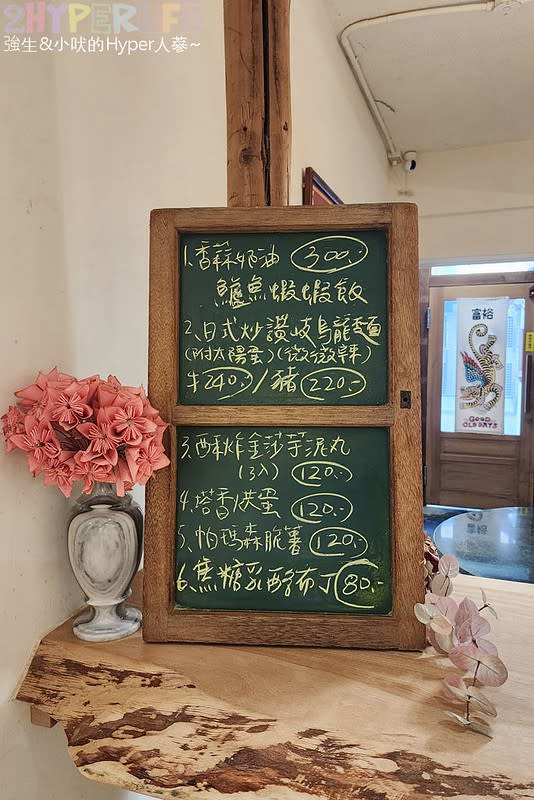 2HYPERLIFE
強生&小吠的Hyper人蔘~
1. 香蒜奶油 300.-
鱸魚蝦蝦飯
2. 日式炒讚岐烏龍麵
(附太陽蛋)(微微辣)
牛240.- / 豬220.-
3. 酥炸金莎芋泥丸
(3入) 120.-
4. 塔香烘蛋 120.-
5. 帕瑪森脆薯 120.-
6. 焦糖乳酪布丁 80.-
富裕
GOOD
OLD DAYS